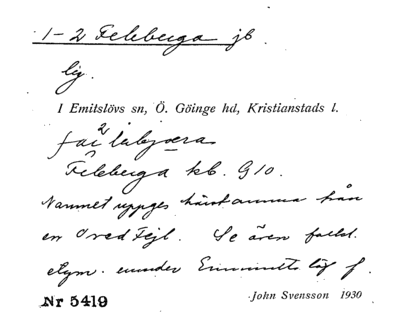 1-2 Feleberga jb.
lig.
I Emitslövs sn, Ö. Göinge hd, Kristianstads l.
Feleberga kb. G10.
Namnet uppges härstamma från
en Ored Fejl. Se även
etym. under
Nr 5419
John Svensson 1930